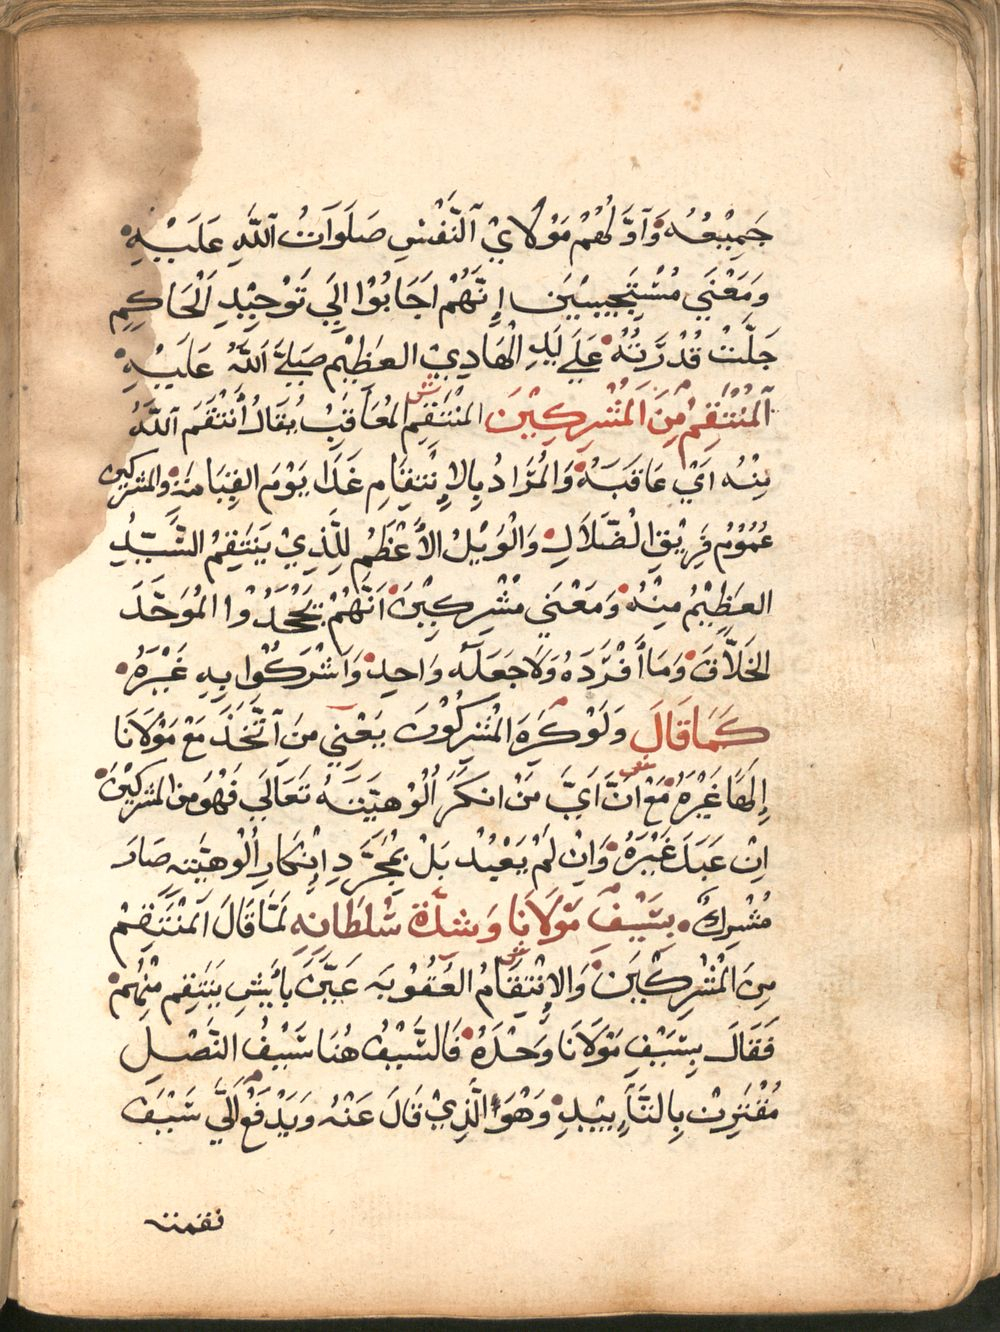 جَمِيْعُهُ وَأَوَّلُهُمْ مَوْلَايَ ٱلنَّفْسِ صَلَوَاتُ ٱللَّهِ عَلَيْهِ
وَمَعْنَي مُسْتَجِيبِيْنَ إِنَّهُمْ اَجَابُوْا إِلَي تَوْحِيْدِ الْحَاكِمِ
جَلَّتْ قُدْرَتُهُ عَلَي يَدِ الْهَادِيْ العَظِيْمِ صَلَّي اَللَّهُ عَلَيْهِ
ٱلمُنْتَقِمُ مِنَ الْمُشْرِكِيْنَ ش المُنْتَقِمُ المُعَاقِبُ يُقَالُ أَنْتَقَمَ ٱللَّهُ
مِنْهُ اَيْ عَاقَبَهُ وَالْمُرَادُ بِالإِنْتِقَامِ غَدَا يَوْمَ القِيَامَةِ وَالمشركين
عُمُوْمُ فَرِيْقِ الضَّلَالِ وَالْوَيْلُ الأَعْظَمُ لِلَّذِيْ يَنْتَقِمُ السَّيِّدُ
العَظِيْمُ مِنْهُ وَمَعْنَي مُشْرِكِيْنَ اَنَّهُمْ جَحَدُوْا المُوَحَّدَ
الخَلَّاقَ وَمَا أَفْرَدَهُ وَلَا جَعَلَهُ وَاحِد وَاشْرَكُوْا بِهِ غَيْرَهُ
كَمَا قَالَ وَلَوْ كَرِهَ المُشْرِكُوْنَ يَعْنِي مَنِ ٱتَّخَذَ مَعْ مَوْلَانَا
إِلَهًا غَيْرَهُ مَعْ اَنَّ اَيَّ مَنْ انكَرَ اُلُوْهِيَّتَهُ تَعَالَي فَهُوَ مِن المشركِيْنَ
اِنْ عَبَدَ غَيْرَهُ وَاِنْ لَمْ يَعْبُدْ بَلْ بِمُجَرَّدِ إِنْكَارِ اُلُوهِيَّتِهِ صَارَ
مُشْرِكٌ بِسَيْفِ مَوْلَانَا وَشِدَّةِ سُلْطَانِهِ لَمَّا قَالَ اَلمُنْتَقِمُ
مِنَ الْمُشْرِكِيْنَ وَالإِنْتِقَامُ العُقُوْبَه عَيَّنَ بِأَيْشِ يَنْتَقِم مِنْهُمْ
فَقَالَ بِسَيْفِ مَوْلَانَا وَحْدَهُ فَالسَّيْفُ هُنَا سَيْفُ النَّصْلِ
مُقْتَرِنْ بِالتَّأْيِيْدِ وَهْوَ الَّذِيْ قَالَ عَنْهُ وَيَدْفَعُ إِلَيَّ سَيْفَ
نقمته